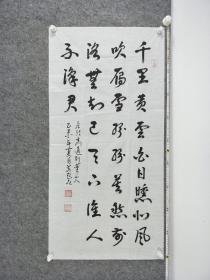 千里黄雲白日曛北風
吹雁雪紛紛莫愁前
路無知己天下誰人
不識君
高適別董大